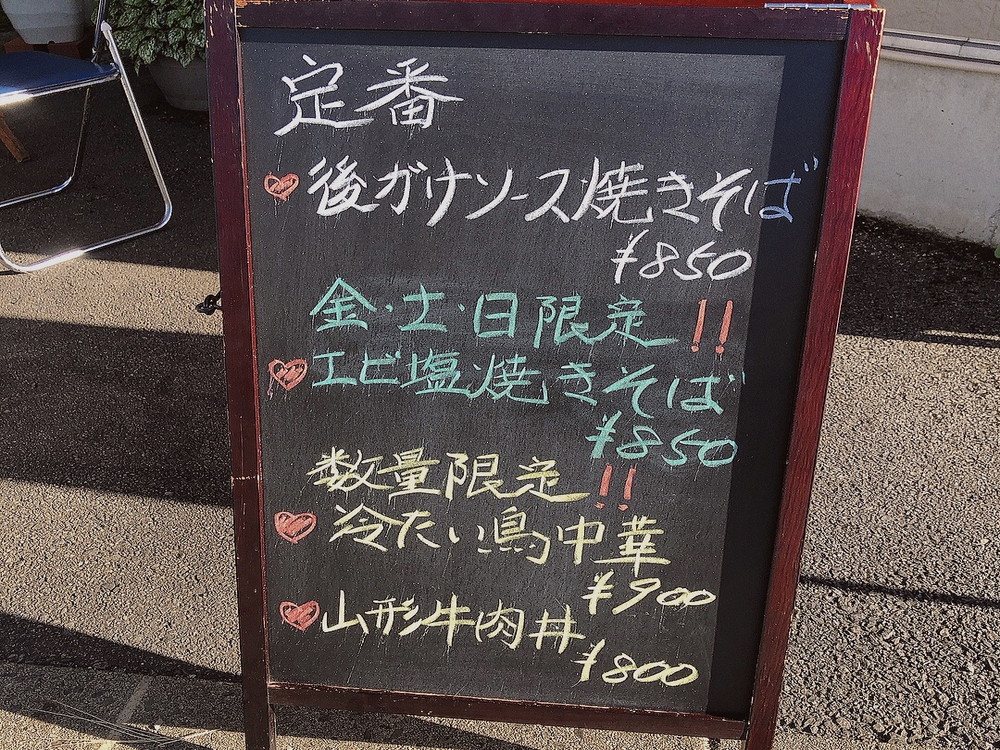 定番
後がけソース焼きそば
¥850
金・土・日限定!!
エビ塩焼きそば
¥850
数量限定!!
冷たい鳥中華
¥900
山形牛肉丼
¥800